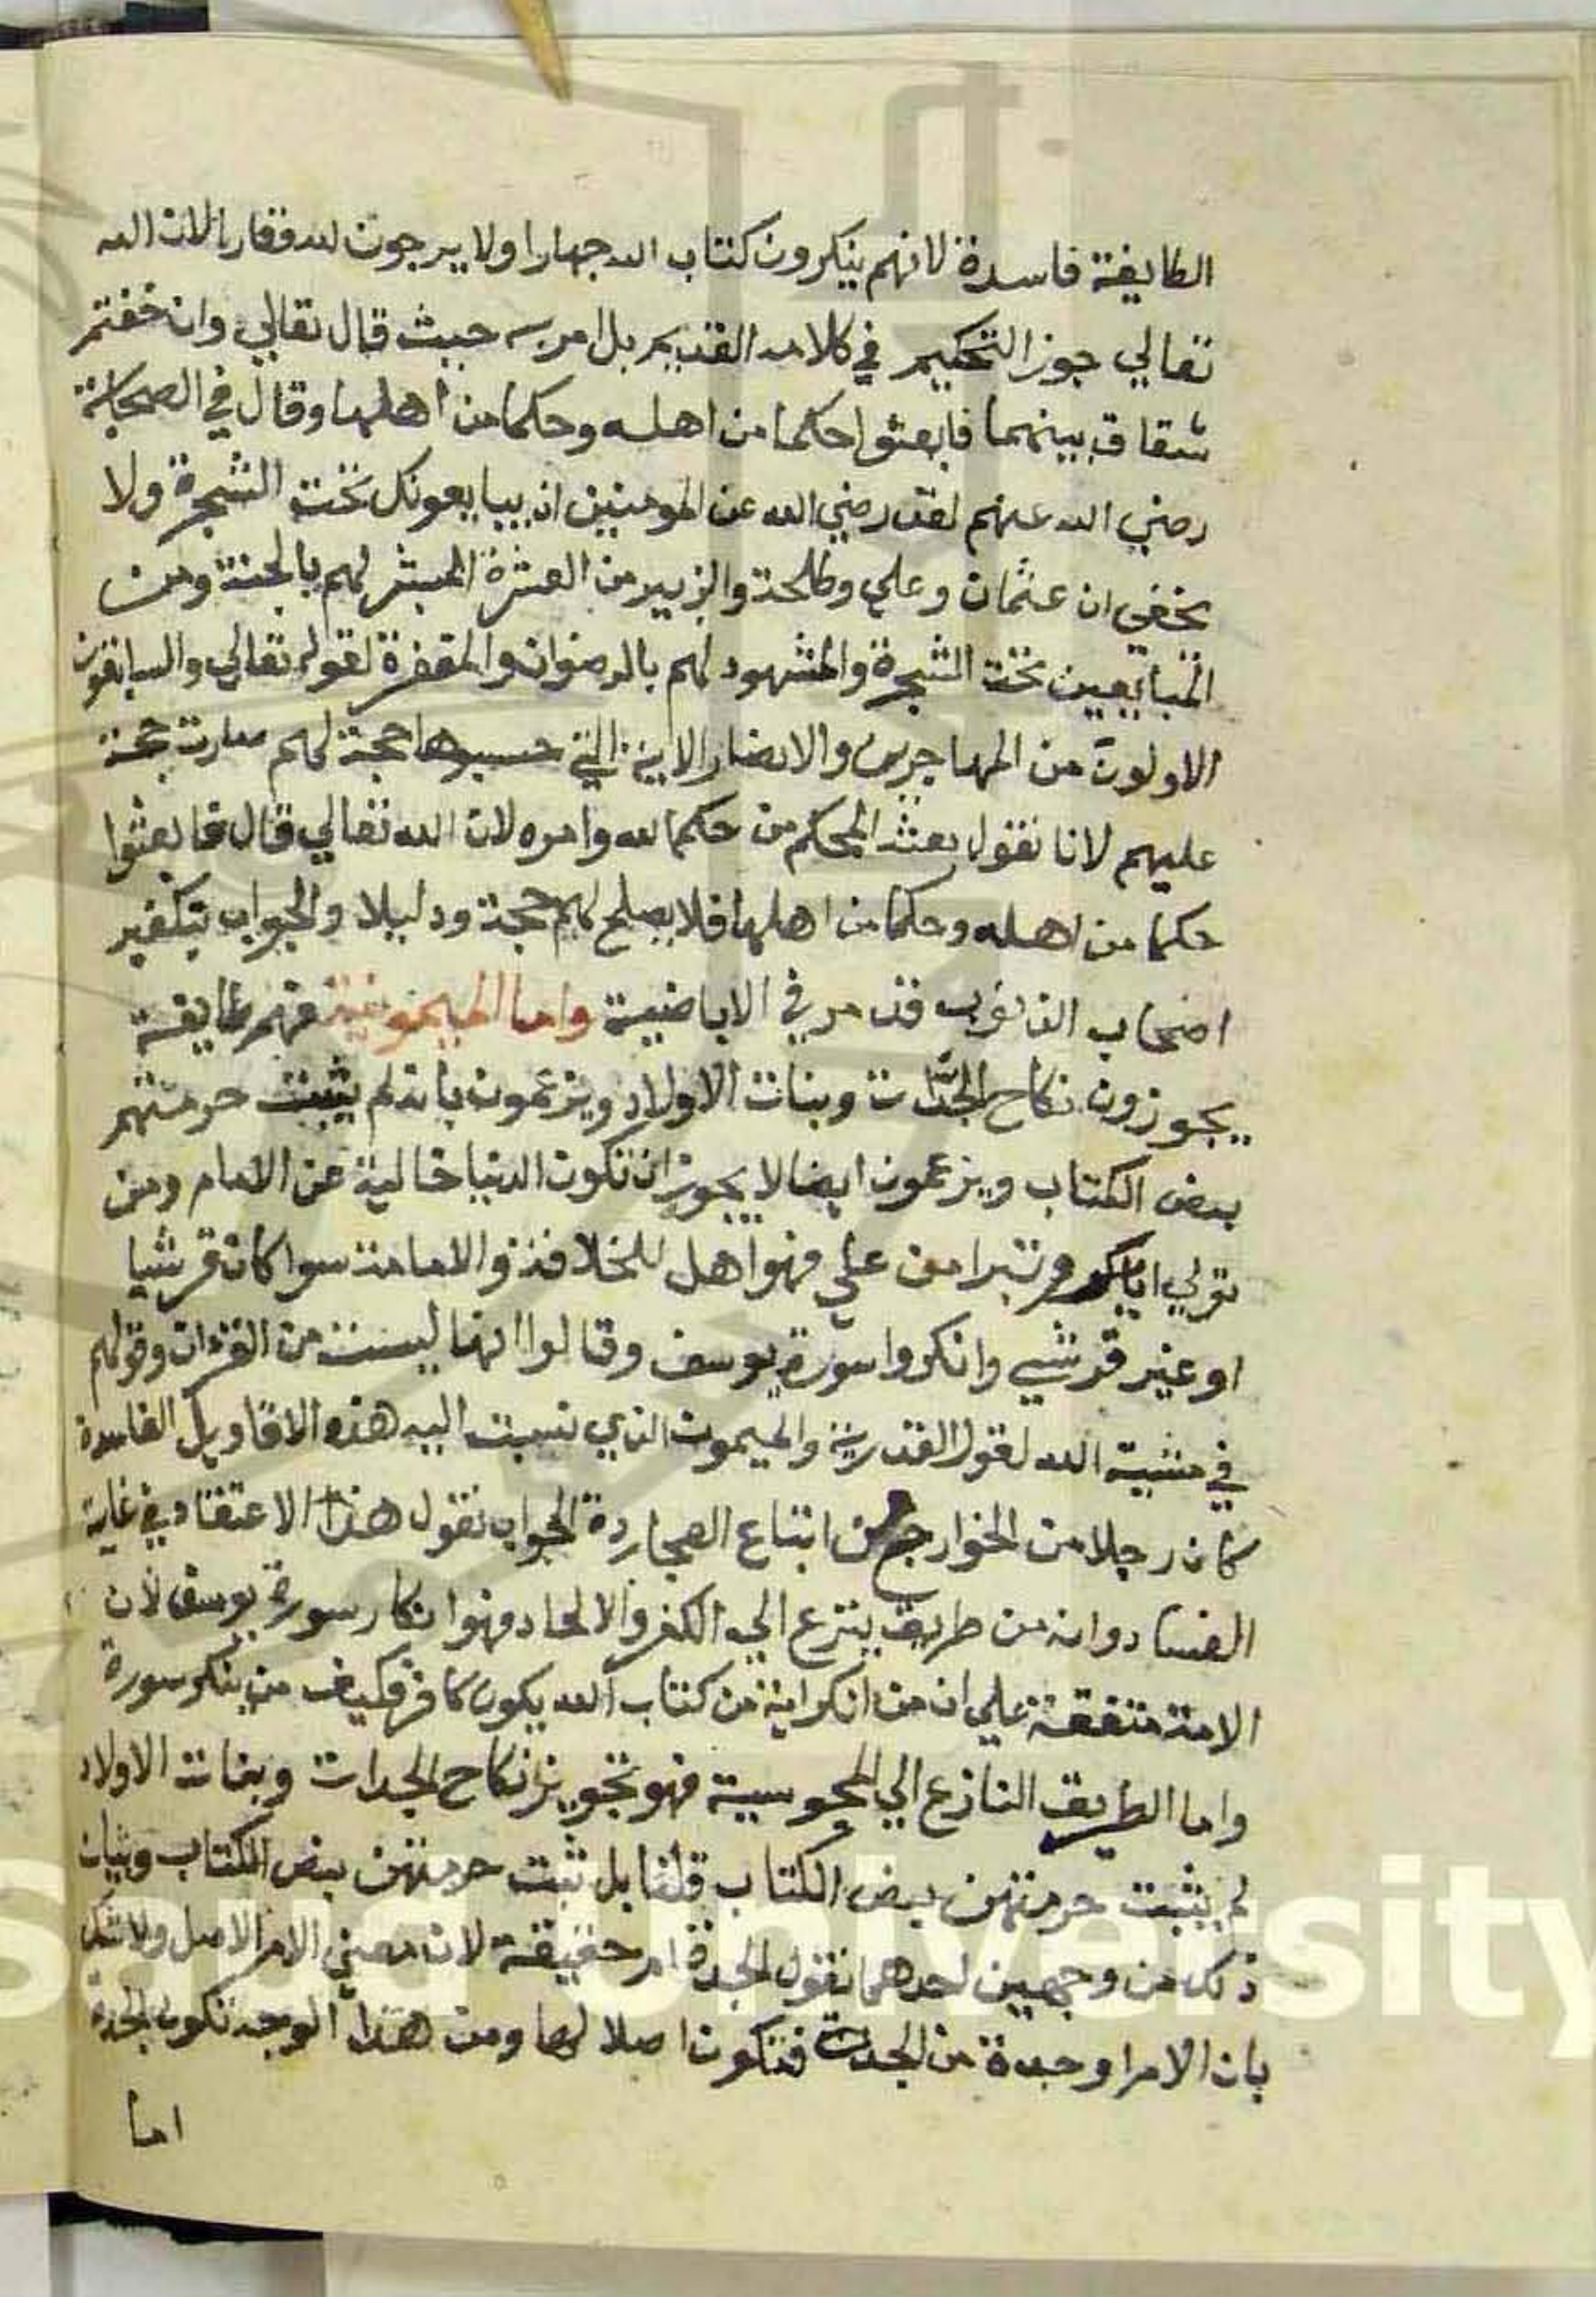 الطايفة فاسدة لانهم ينكرون كتاب الله جهارا ولا يرجون لله وقارا لان الله
تعالي جوز التحكيم في كلامه القديم بل امر به حيث قال تعالي وان خفتم
شقاق بينهما فابعثوا حكما من اهله وحكما من اهلها وقال في الصحابة
رضي الله عنهم لقد رضي الله عن المومنين اذ يبايعونك تحت الشجرة ولا
يخفي ان عثمان وعلي وطلحة والزبير من العشرة المبشر لهم بالجنة ومن
المبايعين تحت الشجرة والمشهود لهم بالرضوان والمغفرة لقوله تعالي والسابقون
الاولون من المهاجرين والانصار الاية التي حسبوها حجة لهم صارت حجة
عليهم لانا نقول بعث الحكم من حكم الله وامره لان الله تعالي قال فابعثوا
حكما من اهله وحكما من اهلها فلا يصلح لهم حجة ودليلا والجواب بتكفير
اصحاب الذنوب قد مر في الاباضية واما الميمونية فهم طايفة
يجوزون نكاح الجدات وبنات الاولاد ويزعمون بانه لم يثبت حرمتهم
بنص الكتاب ويزعمون ايضا لا يجوز ان تكون الدنيا خالية عن الامام ومن
تولي ابابكر وتبرا من علي فهو اهل للخلافة والامامة سوا كان قرشيا
او غير قرشي وانكروا سورة يوسف وقالوا انها ليست من القران وقولهم
في مشية الله لقول القدرية والميمون الذي نسبت اليه هذه الاقاويل الفاسدة
كان رجلا من الخوارج من اتباع العجاردة الجواب نقول هذا الاعتقاد في غاية
الفساد وانه من طريق ينزع الي الكفر والالحاد وهو انكار سورة يوسف لان
الامة متفقة علي ان من انكر اية من كتاب الله يكون كافر فكيف من ينكر سورة
واما الطريق النازع الي المجوسية فهو تجويز نكاح الجدات وبنات الاولاد
لم يثبت حرمتهن بنص الكتاب قلنا بل ثبت حرمتهن بنص الكتاب وبيان
ذلك من وجهين احدهما نقول الجدة ام حقيقة لان معني الام الاصل ولا شك
بان الام اوحدة من الجدات فتكون اصلا لها ومن هذا الوجه تكون الجدة
اما
Saud University